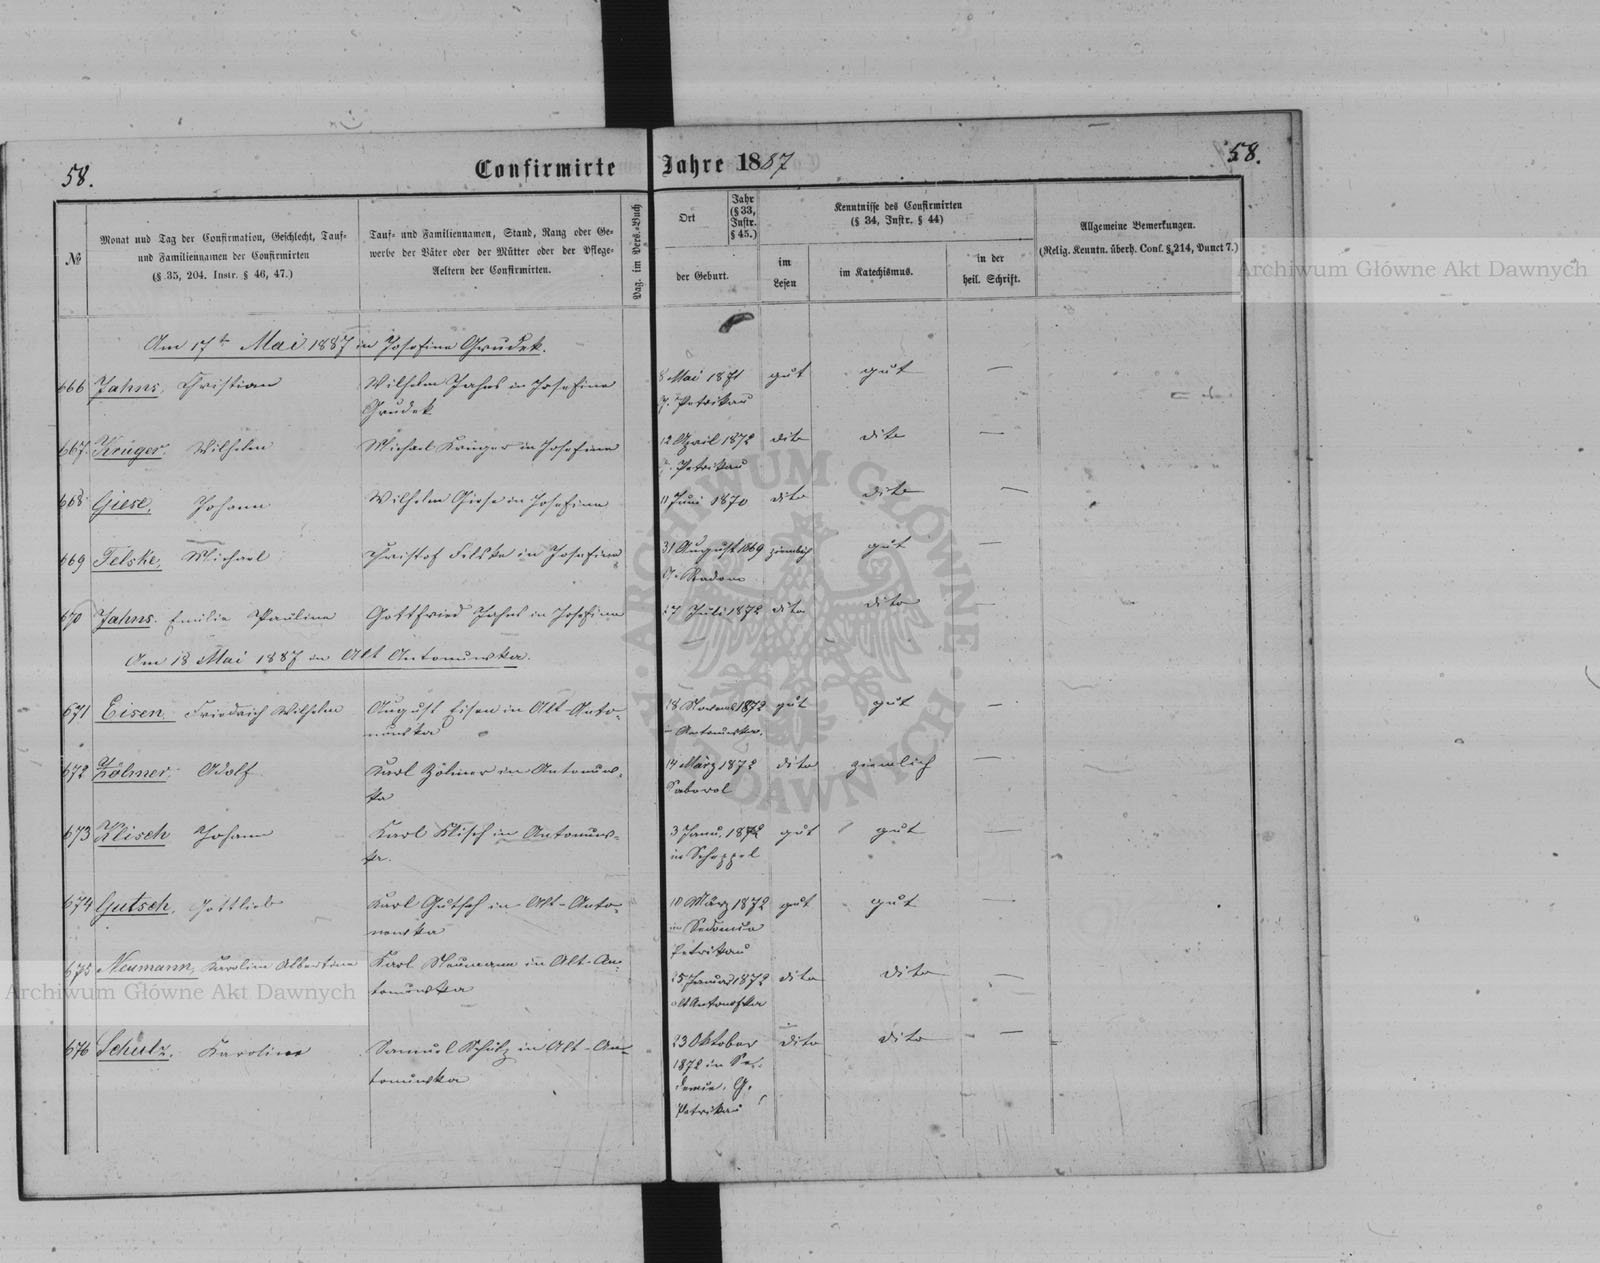 58.
Confirmirte
Jahre 1887
58.
№
Monat und Tag der Confirmation, Geschlecht, Tauf-
und Familiennamen der Confirmirten
(§ 35, 204. Instr. § 46, 47.)
Tauf- und Familiennamen, Stand, Rang oder Ge-
werbe der Väter oder der Mütter oder der Pflege-
Aeltern der Confirmirten.
Pag. im Pers.-Buch
Ort
Jahr
(§ 33,
Instr.
§ 45.)
der Geburt.
Kenntnisse des Confirmirten
(§ 34, Instr. § 44)
im
Lesen
im Katechismus.
in der
heil. Schrift.
Allgemeine Bemerkungen.
(Relig. Kenntn. überh. Conf. § 214, Punct 7.)
Am 17t Mai 1887 in Josefine Grudek.
666 Jahns, Christian Wilhelm Jahns in Josefine 8 Mai 1871 gut gut —
Grudek G. Petrikau
667. Krüger. Wilhelm Michael Krüger in Josefine 12 April 1872 dito dito —
G. Petrikau
668 Giese, Johann Wilhelm Giese in Josefine 11 Juni 1870 dito dito —
669 Felske, Michael Christof Felske in Josefine 31 August 1869 ziemlich gut —
G. Radom
670 Jahns. Emilie Pauline Gottfried Jahns in Josefine 27 Juli 1872 dito dito —
Am 18 Mai 1887 in Alt Antonuwka.
671 Eisen, Friedrich Wilhelm August Eisen in Alt-Anto- 18 Novemb 1872 gut gut —
nuwka in Antonuwka.
672 Zölmer, Adolf Karl Zölmer in Antonuw- 14 März 1872 dito ziemlich —
ka
673 Klisch Johann Karl Klisch in Antonuw- 3 Janu. 1872 gut gut —
ka.
674 Gutsch, Gottlieb Karl Gutsch in Alt-Anto- 10 März 1872 gut gut —
nowka in
Petrikau
675 Neumann, Karoline Albertine Karl Neumann in Alt-An- 25 Januar 1872 dito dito —
tonuwka
676 Schulz, Karoline Samuel Schulz in Alt-An- 23 Oktober dito dito —
tonuwka 1872 in
G.
Petrikau
ARCHIWUM GŁÓWNE AKT DAWNYCH
Archiwum Główne Akt Dawnych
Archiwum Główne Akt Dawnych